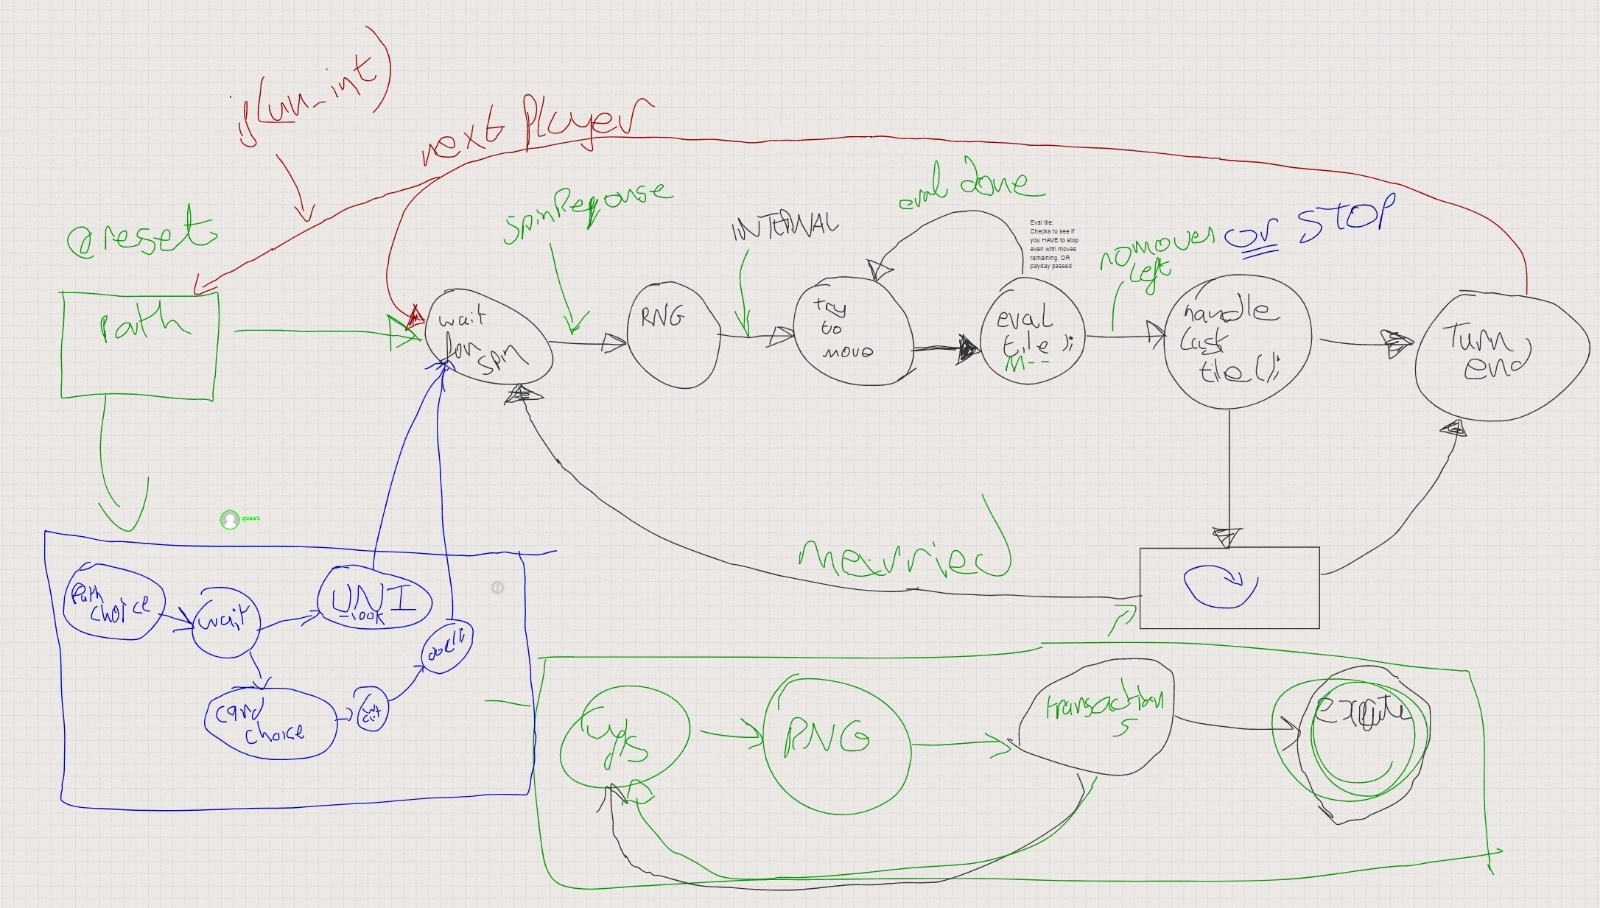 if(un_int)
next Player
@reset
spinReponse
INTERNAL
eval Done
Eval tile:
Checks to see if
you HAVE to stop
even with moves
remaining. OR
payday passed
nomoves
left
or STOP
Path
wait
for
spin
RNG
try
to
move
eval
tile();
M--
handle
last
tile();
Turn
end
married
guest
?
Path
choice
wait
UNI
-100K
card
choice
RNG
transaction
s